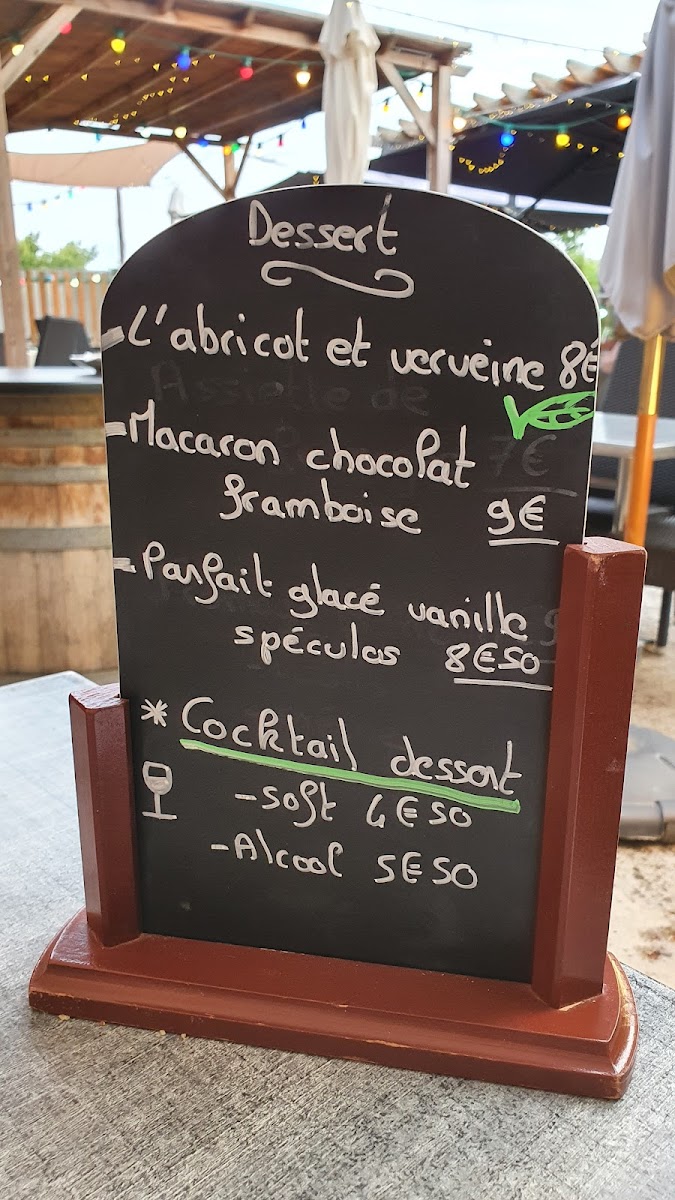 Dessert
-L'abricot et verveine 8€
-Macaron chocolat
framboise 9€
-Parfait glacé vanille
spéculos 8€50
* Cocktail dessert
-soft 4€50
-Alcool 5€50